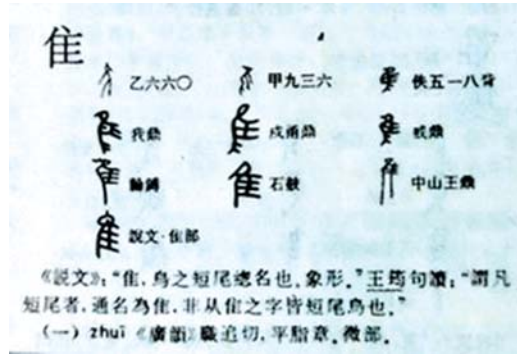 隹
乙六六〇 甲九三六 佚五一八背
我鼎 戍甬鼎 戒鼎
輪鎛 石鼓 中山王鼎
說文·隹部
《說文》:“隹,鸟之短尾總名也,象形。”王筠句讀:“謂凡
短尾者,通名為隹,非从隹之字皆短尾鸟也。”
(一)zhuī《廣韻》職追切,平脂章。微部。